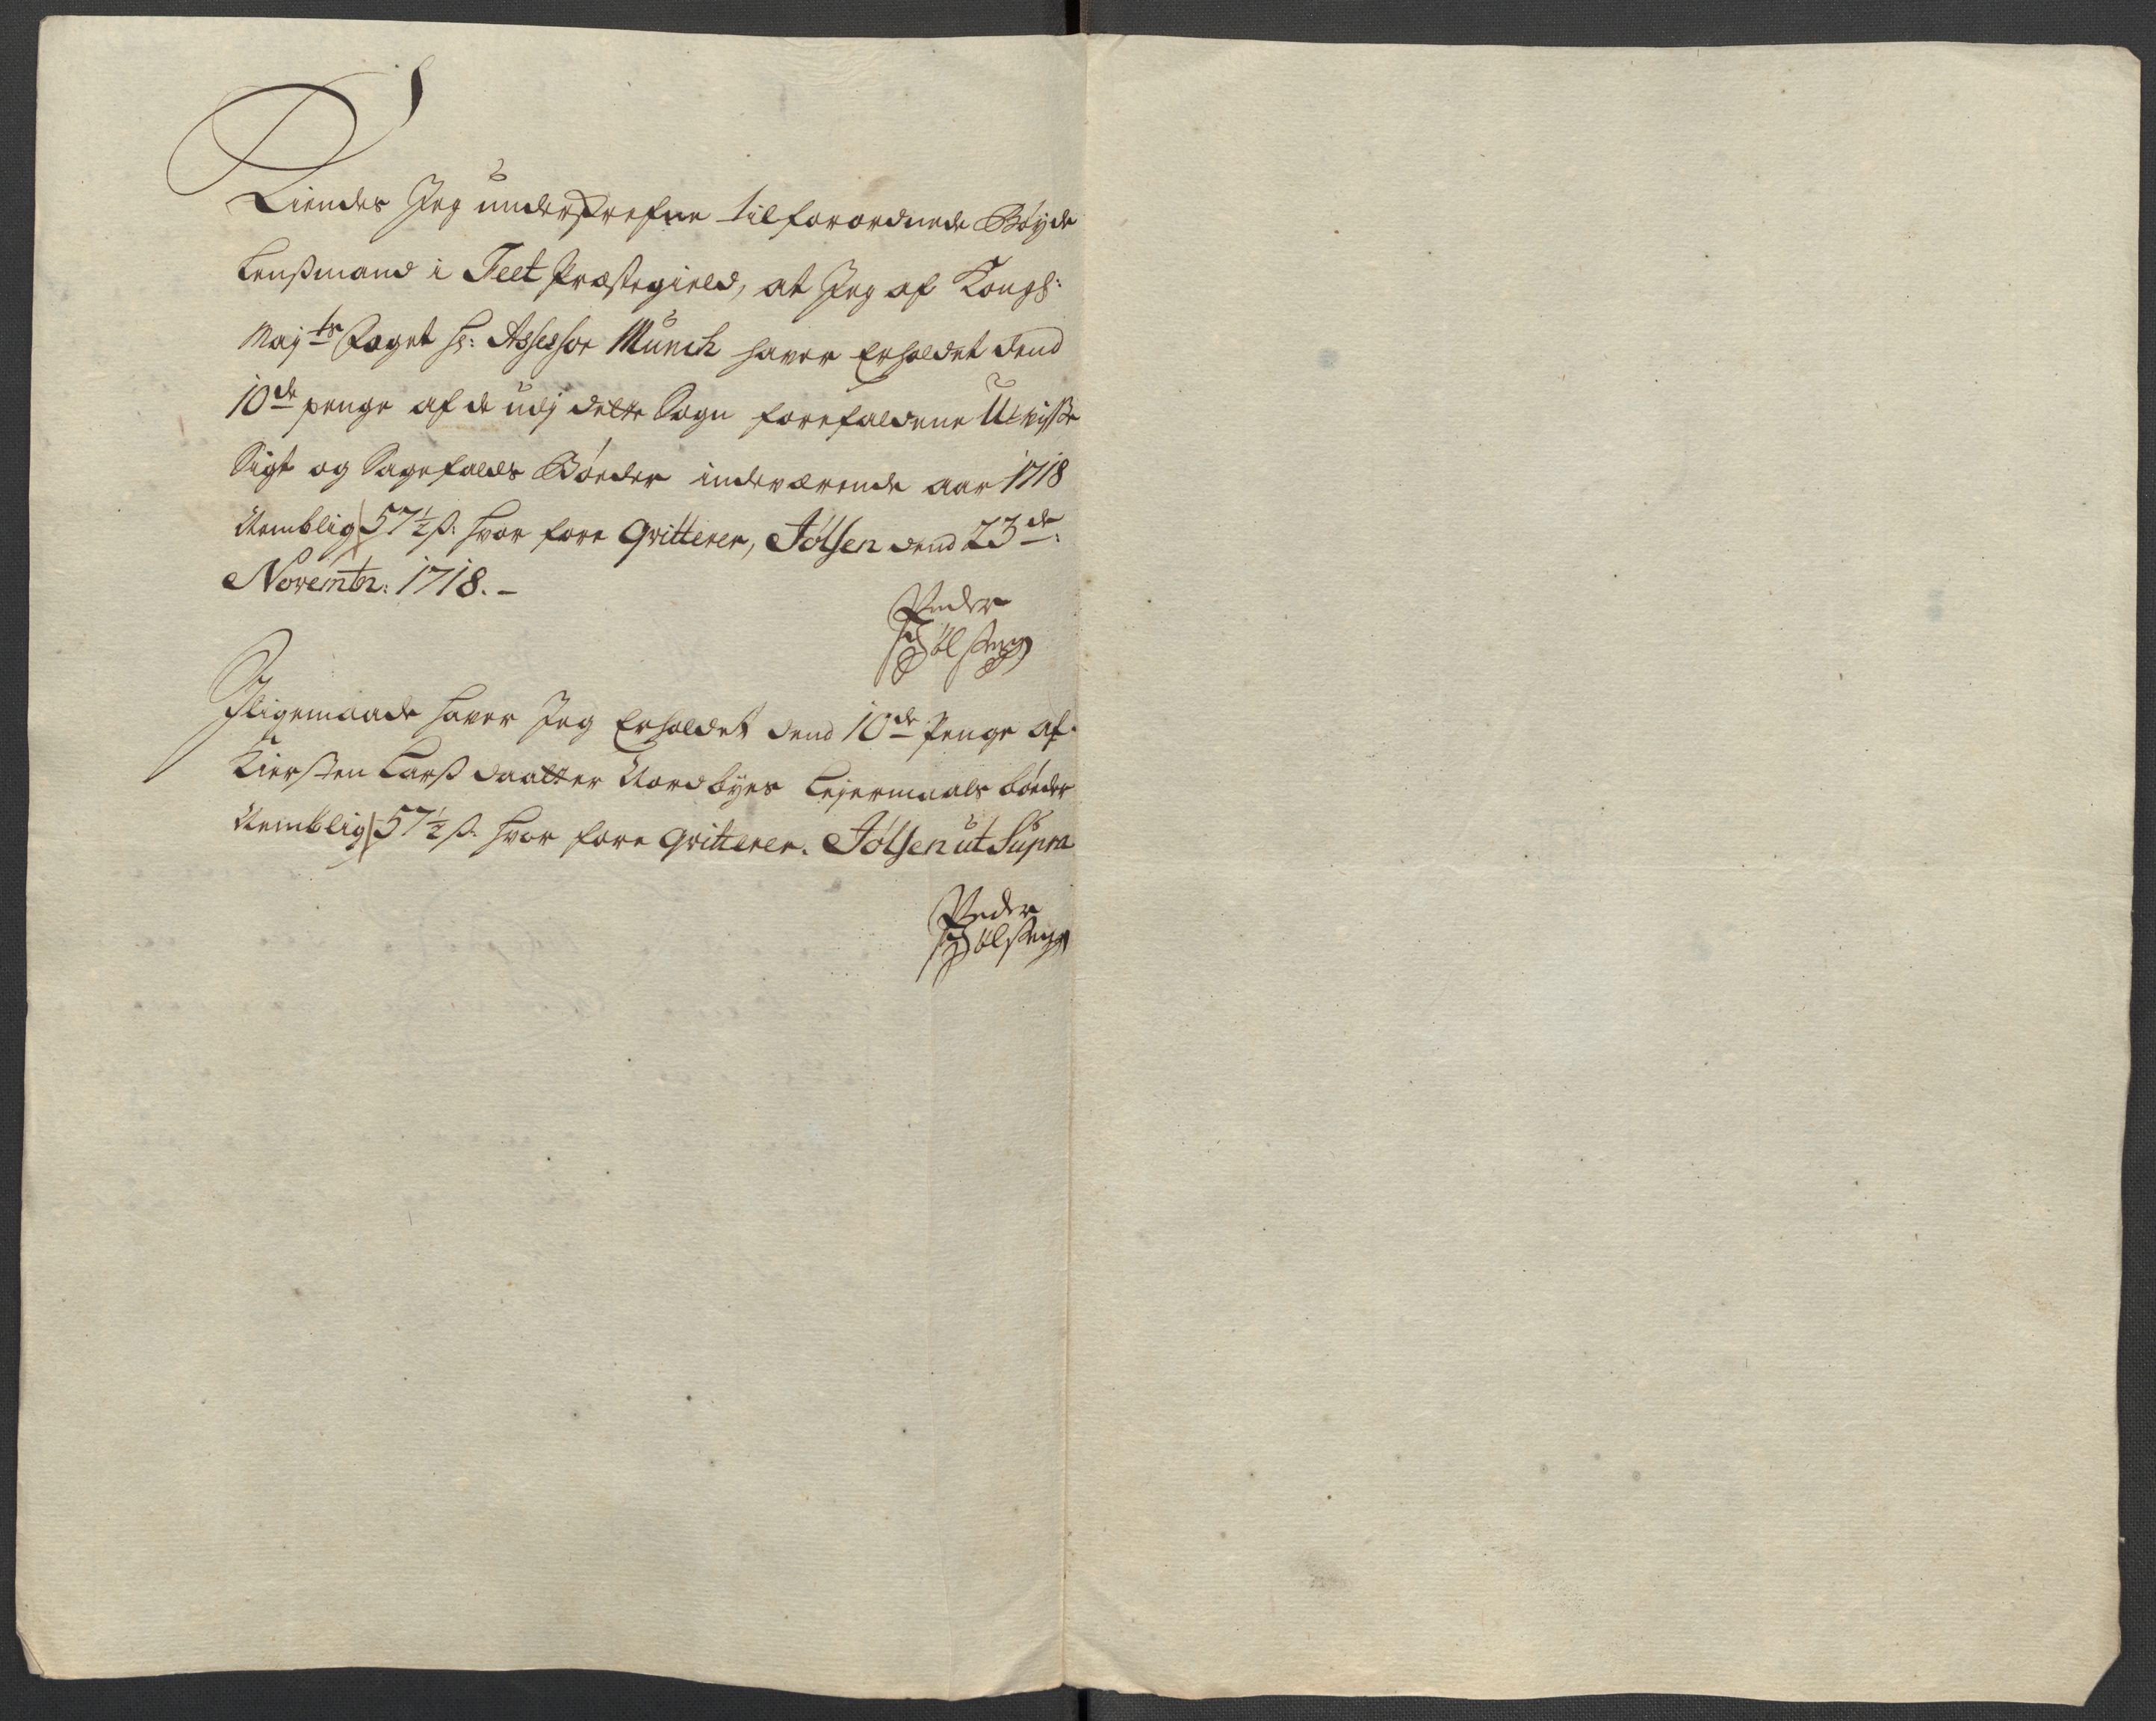 Kiendes Jeg underskrefne tilforordnede Bøyde
Lensmand i Feet Præstegield, at Jeg af Kongl:
Maj:ts Foget Hr: Assessor Munch haver Erholdet dend
10de penge af de udj dette Sogn forefaldene Uvisse
Sigt og Sagefalds Bøeder indeværende aar 1718
Nemblig 57½ ß: hvor fore qvitterer, Jølsen dend 23de:
Novembr: 1718. –
Peder
Jølsen
Jligemaade haver Jeg Erholdet dend 10de Penge af
Kiersten Larsdaatter Nordbyes Lejermaals bøeder
Nemblig 57½ ß. hvor fore qvitterer. Jølsen ut Supra
Peder
Jølsen